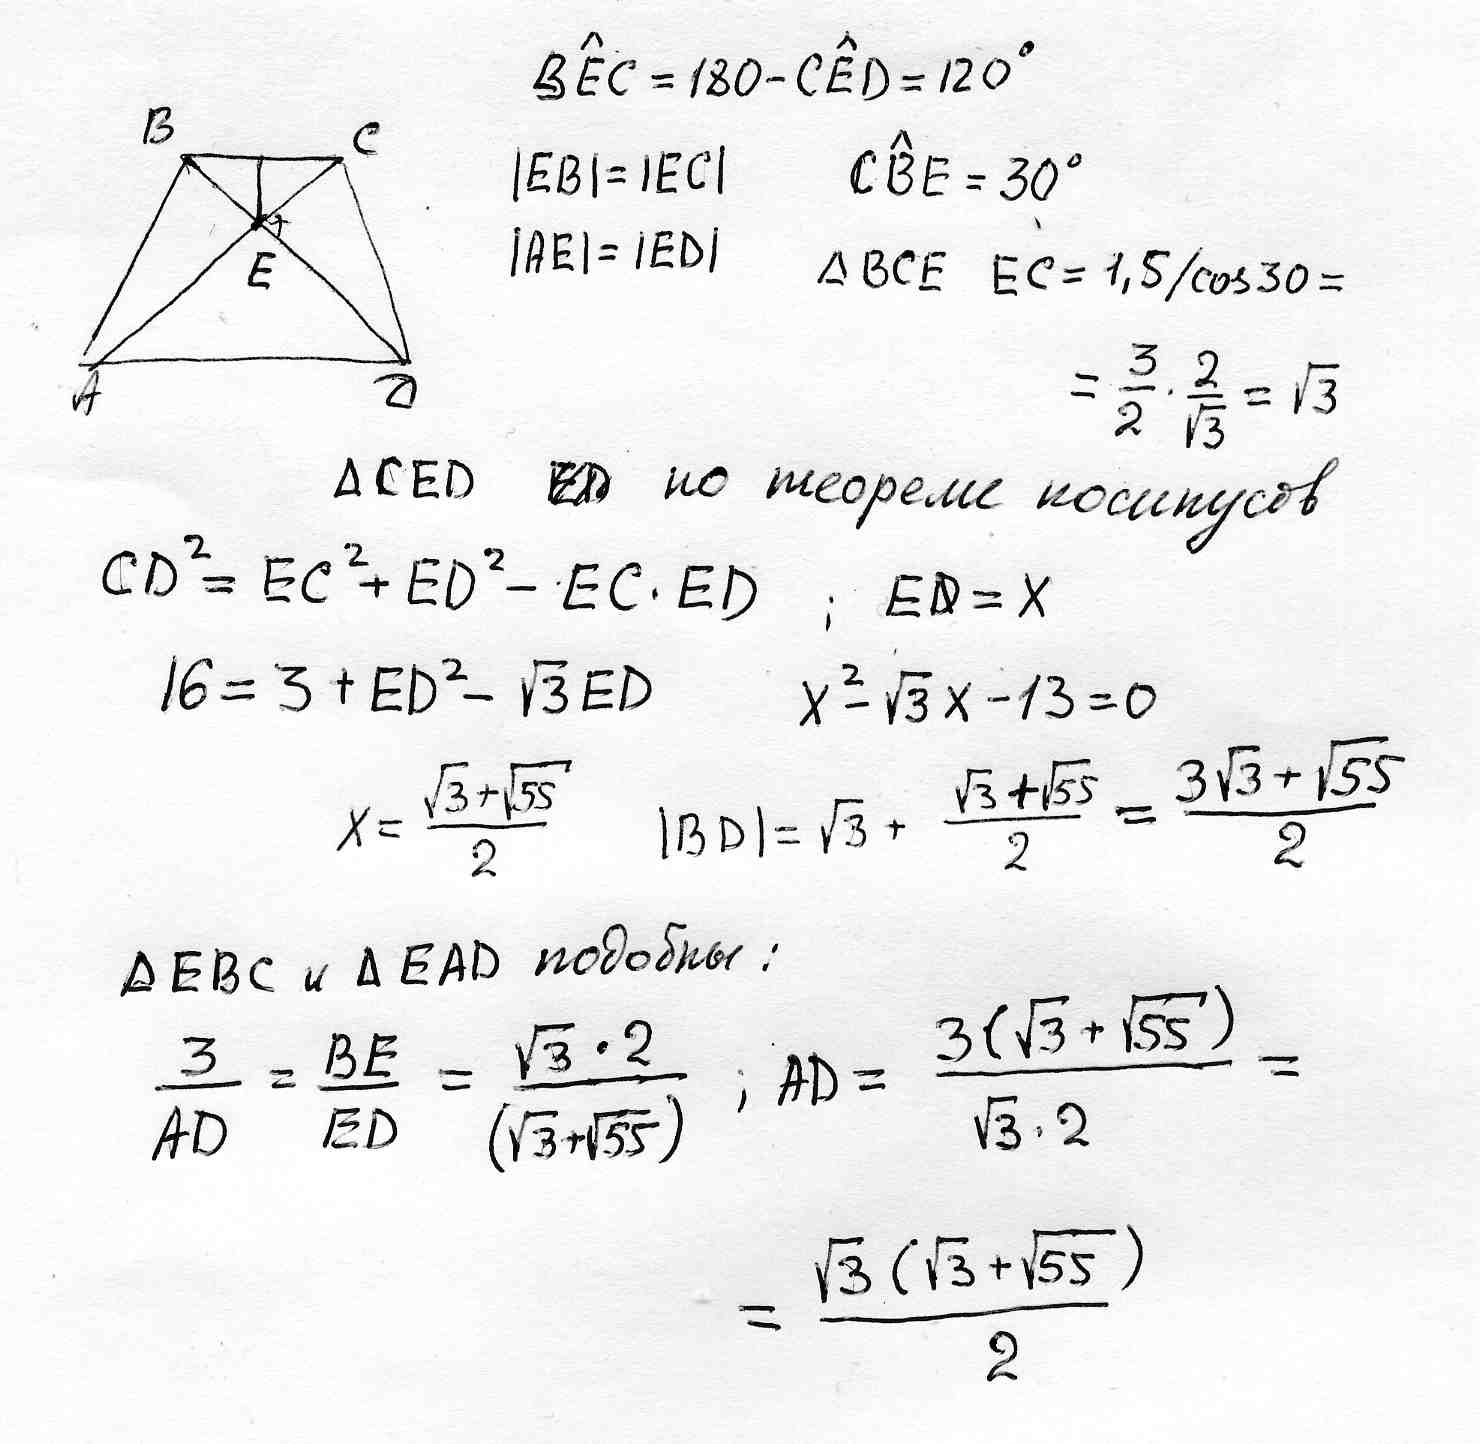 BÊC = 180 - CÊD = 120°
B C
|EB| = |EC| CB̂E = 30°
|AE| = |ED| ΔBCE EC = 1,5/cos30 =
E
= 3/2 · 2/√3 = √3
A D
ΔCED по теореме косинусов
CD² = EC² + ED² - EC · ED ; ED = X
16 = 3 + ED² - √3 ED X² - √3 X - 13 = 0
X = (√3 + √55)/2 |BD| = √3 + (√3 + √55)/2 = (3√3 + √55)/2
ΔEBC и ΔEAD подобны:
3/AD = BE/ED = √3 · 2/(√3 + √55) ; AD = 3(√3 + √55)/(√3 · 2) =
= √3 (√3 + √55)/2